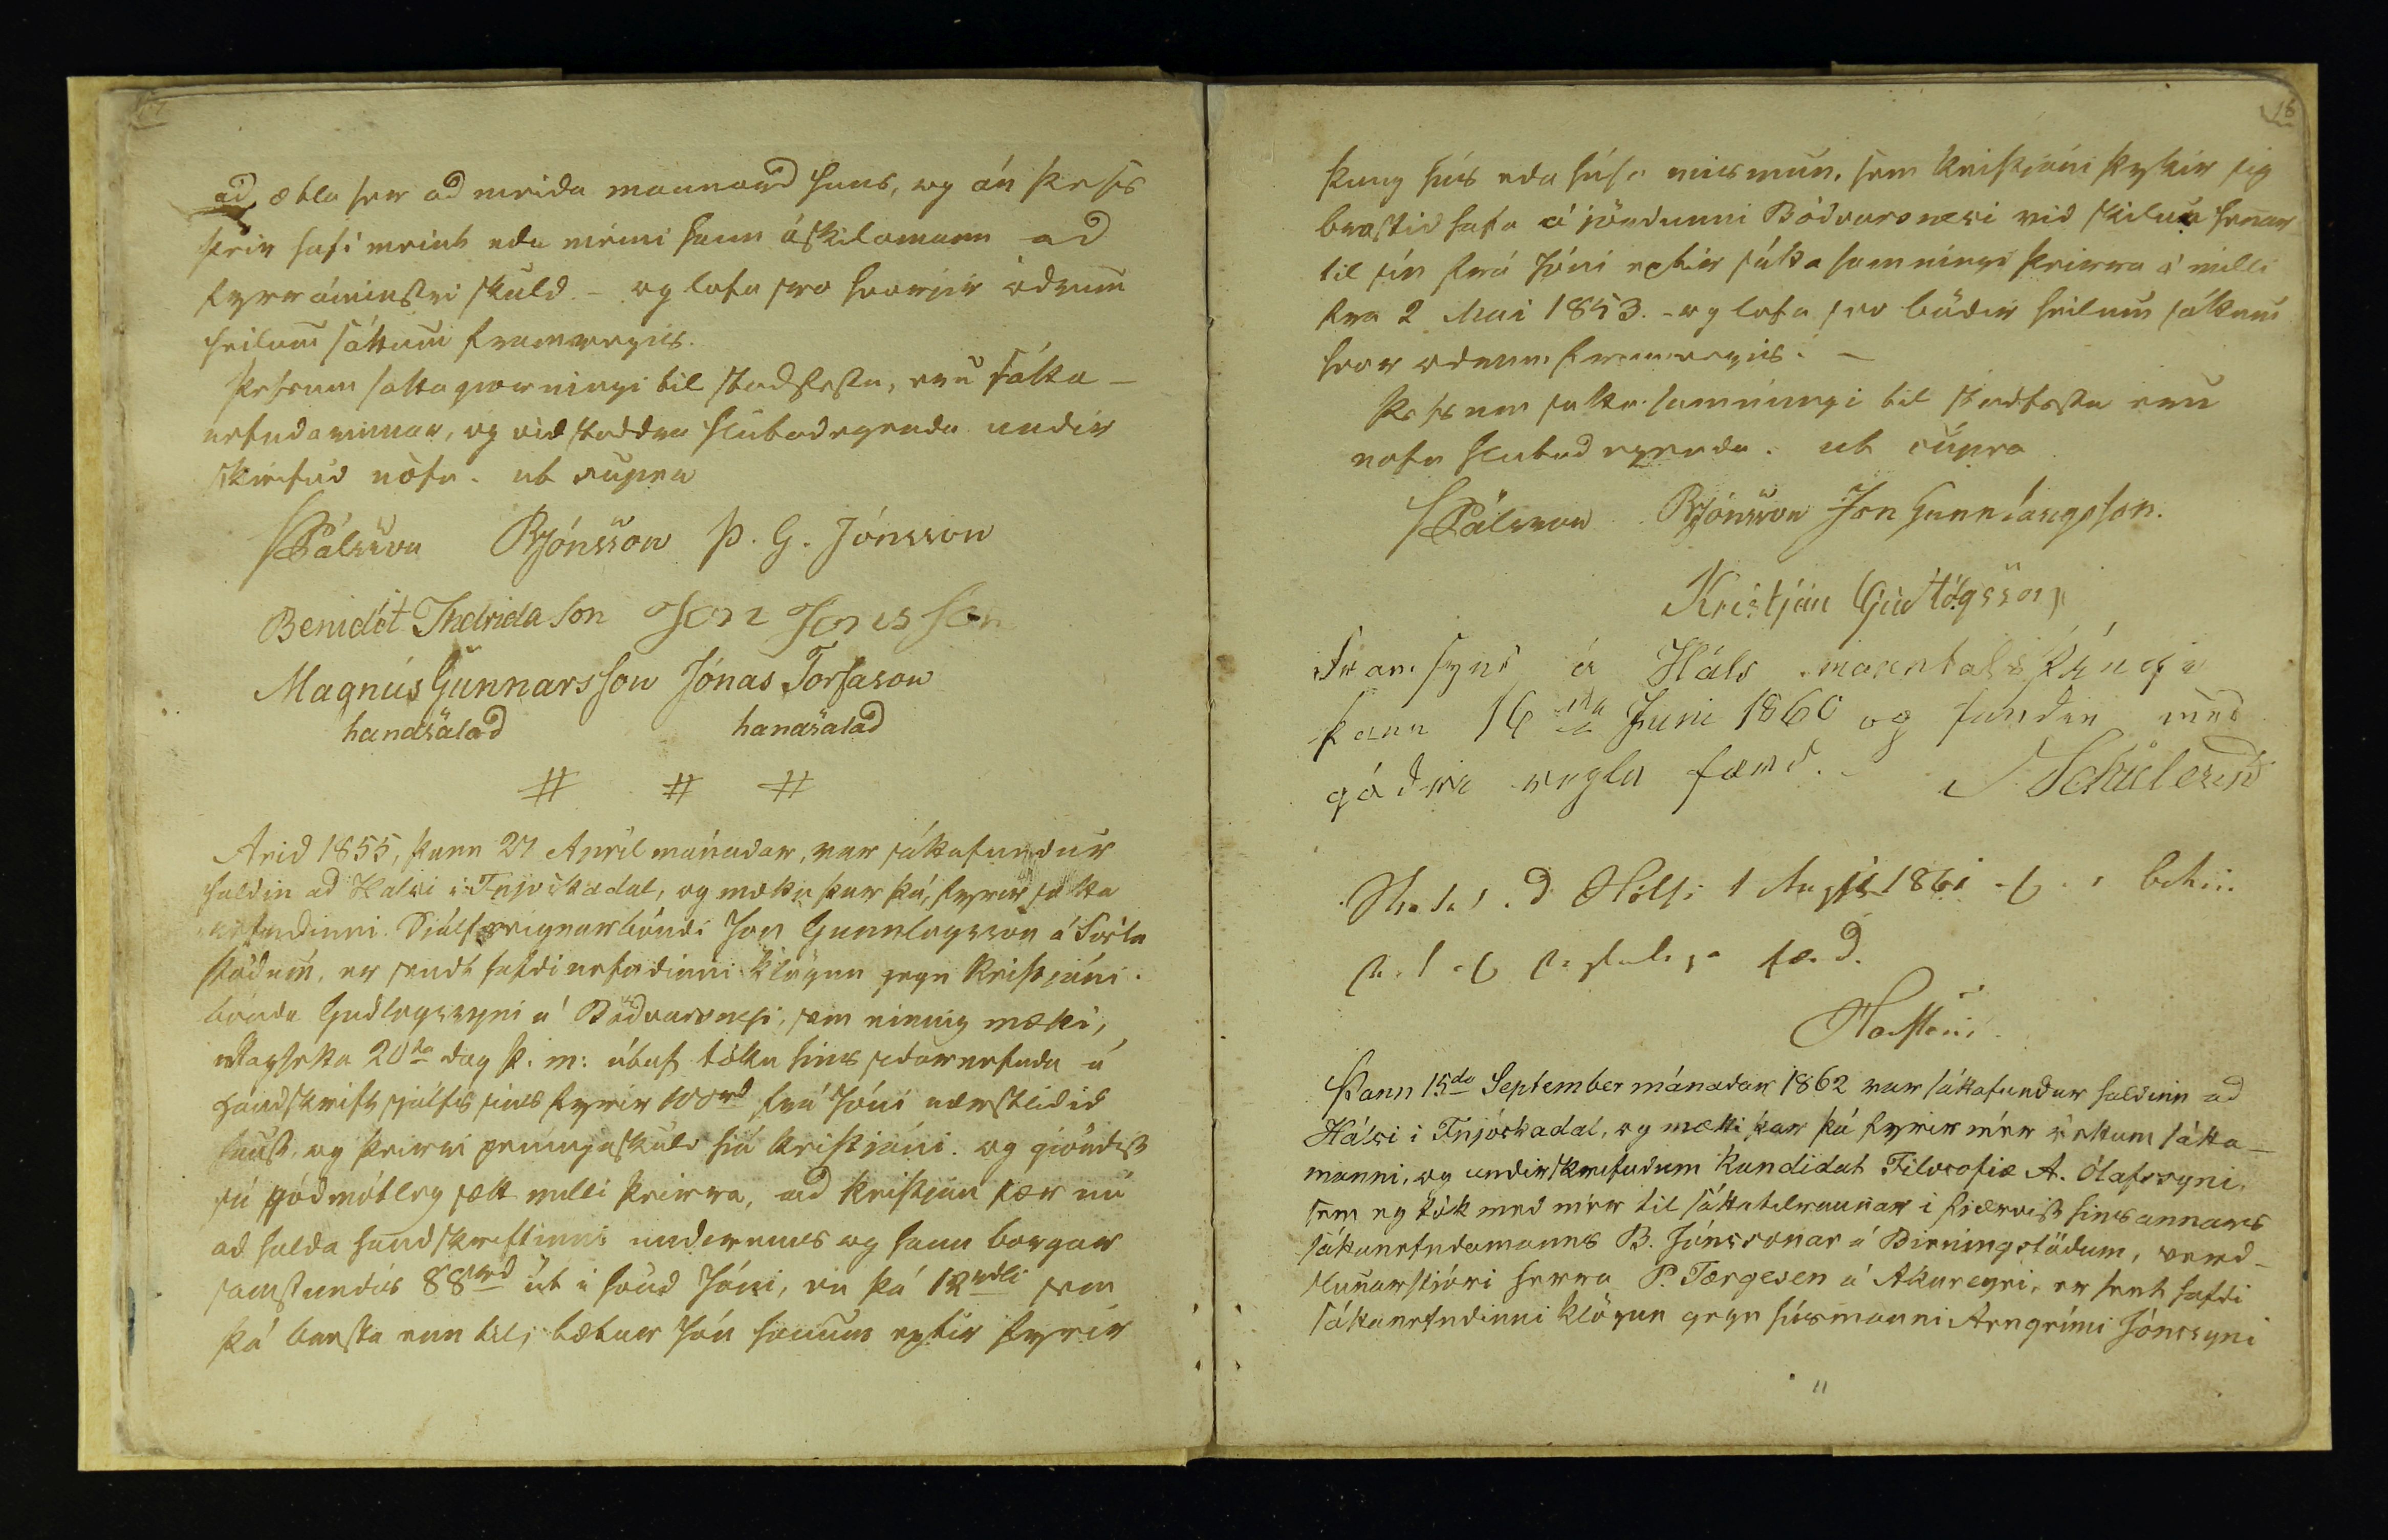 17
að ætla ser að meiða mannorð hans, og án þess
þeir hafi meint eða meini hann óskilamann að
fyrr áminstri skuld - og lofa svo hvorjir öðrum
heilum sáttum framvegis.
Þessum sattagiorningi til staðfestu, eru sátta-
nefndarinnar, og viðstaddra hlutaðegenda undir
skrifuð nöfn. ut supra
SPálsson BJónsson Þ. G. Jónsson
Benidót Indridason Jon Jonsson
Magnús Gunnarsson Jónas Torfason
handsalad handsalad
# # #
Arið 1855, þann 27 April mánaðar, var sáttafundur
haldin að Halsi i Fnjóskadal, og mætti þar þá, fyrir sátta
nefndinni Sjálfseignarbóndi Jon Gunnlögsson á Sörla
stöðum, er sendt hafði nefndinni klögun gegn Kristjáni
bónda Guðlögssyni á Böðvarsnesi, sem einnig mætti,
dagsetta 20ta dag þ. m: útaf töku hins siðarnefnda á
handskrift sjálfs sins fyrir 100rd frá Jóni næstliðið
haust, og þeirri peningaskuld hjá Kristjáni. og gjörðist
sú góðmótleg sætt milli þeirra, að Kristjan fær nú
að halda handskriftinni undireins og hann borgar
samstundis 88rd út i hönd Jóni, en þá 12rdli sem
þá bresta enn til, bætur Jón honum eptir fyrir
18
þung hús eða húsa mismun, sem Kristjáni þykir sig
brostið hafa á jörðunni Böðvarsnesi við skilun hennar
til sín frá Jóni eptir sátta samningi þeirra á milli
fra 2 Mai 1853. - og lofa svo báðir heilum sáttum
hvor öðrum framvegis. -
Þessum satta samningi til staðfestu eru
nöfn hlutaðegenda. ut supra
SPálsson BJónsson Jon Gunnlaugsson.
Kristján Guðlögsson
Framsynd á Háls manntalsþingi
þann 16 da Juni 1860 og fundin með
góðri reglu færd. - SSchulesen
1861
færd.
Þann 15da September mánaðar 1862 var sáttafundur haldinn að
Hálsi i Fnjóskadal, og mætti þar þá fyrir mér settum sátta-
manni, og undirskrifuðum Kandidat Filosofiæ A. Ólafssyni,
sem eg tók með mér til sáttatilraunar i fjærvist hins annars
sáttanefndamanns B. Jónssonar á Birningstöðum, verð-
slunarstjóri herra P. Tærgesen á Akureyri, er sent hafði
sáttanefndinni klögun gegn húsmanni Arngrimi Jónssyni
"